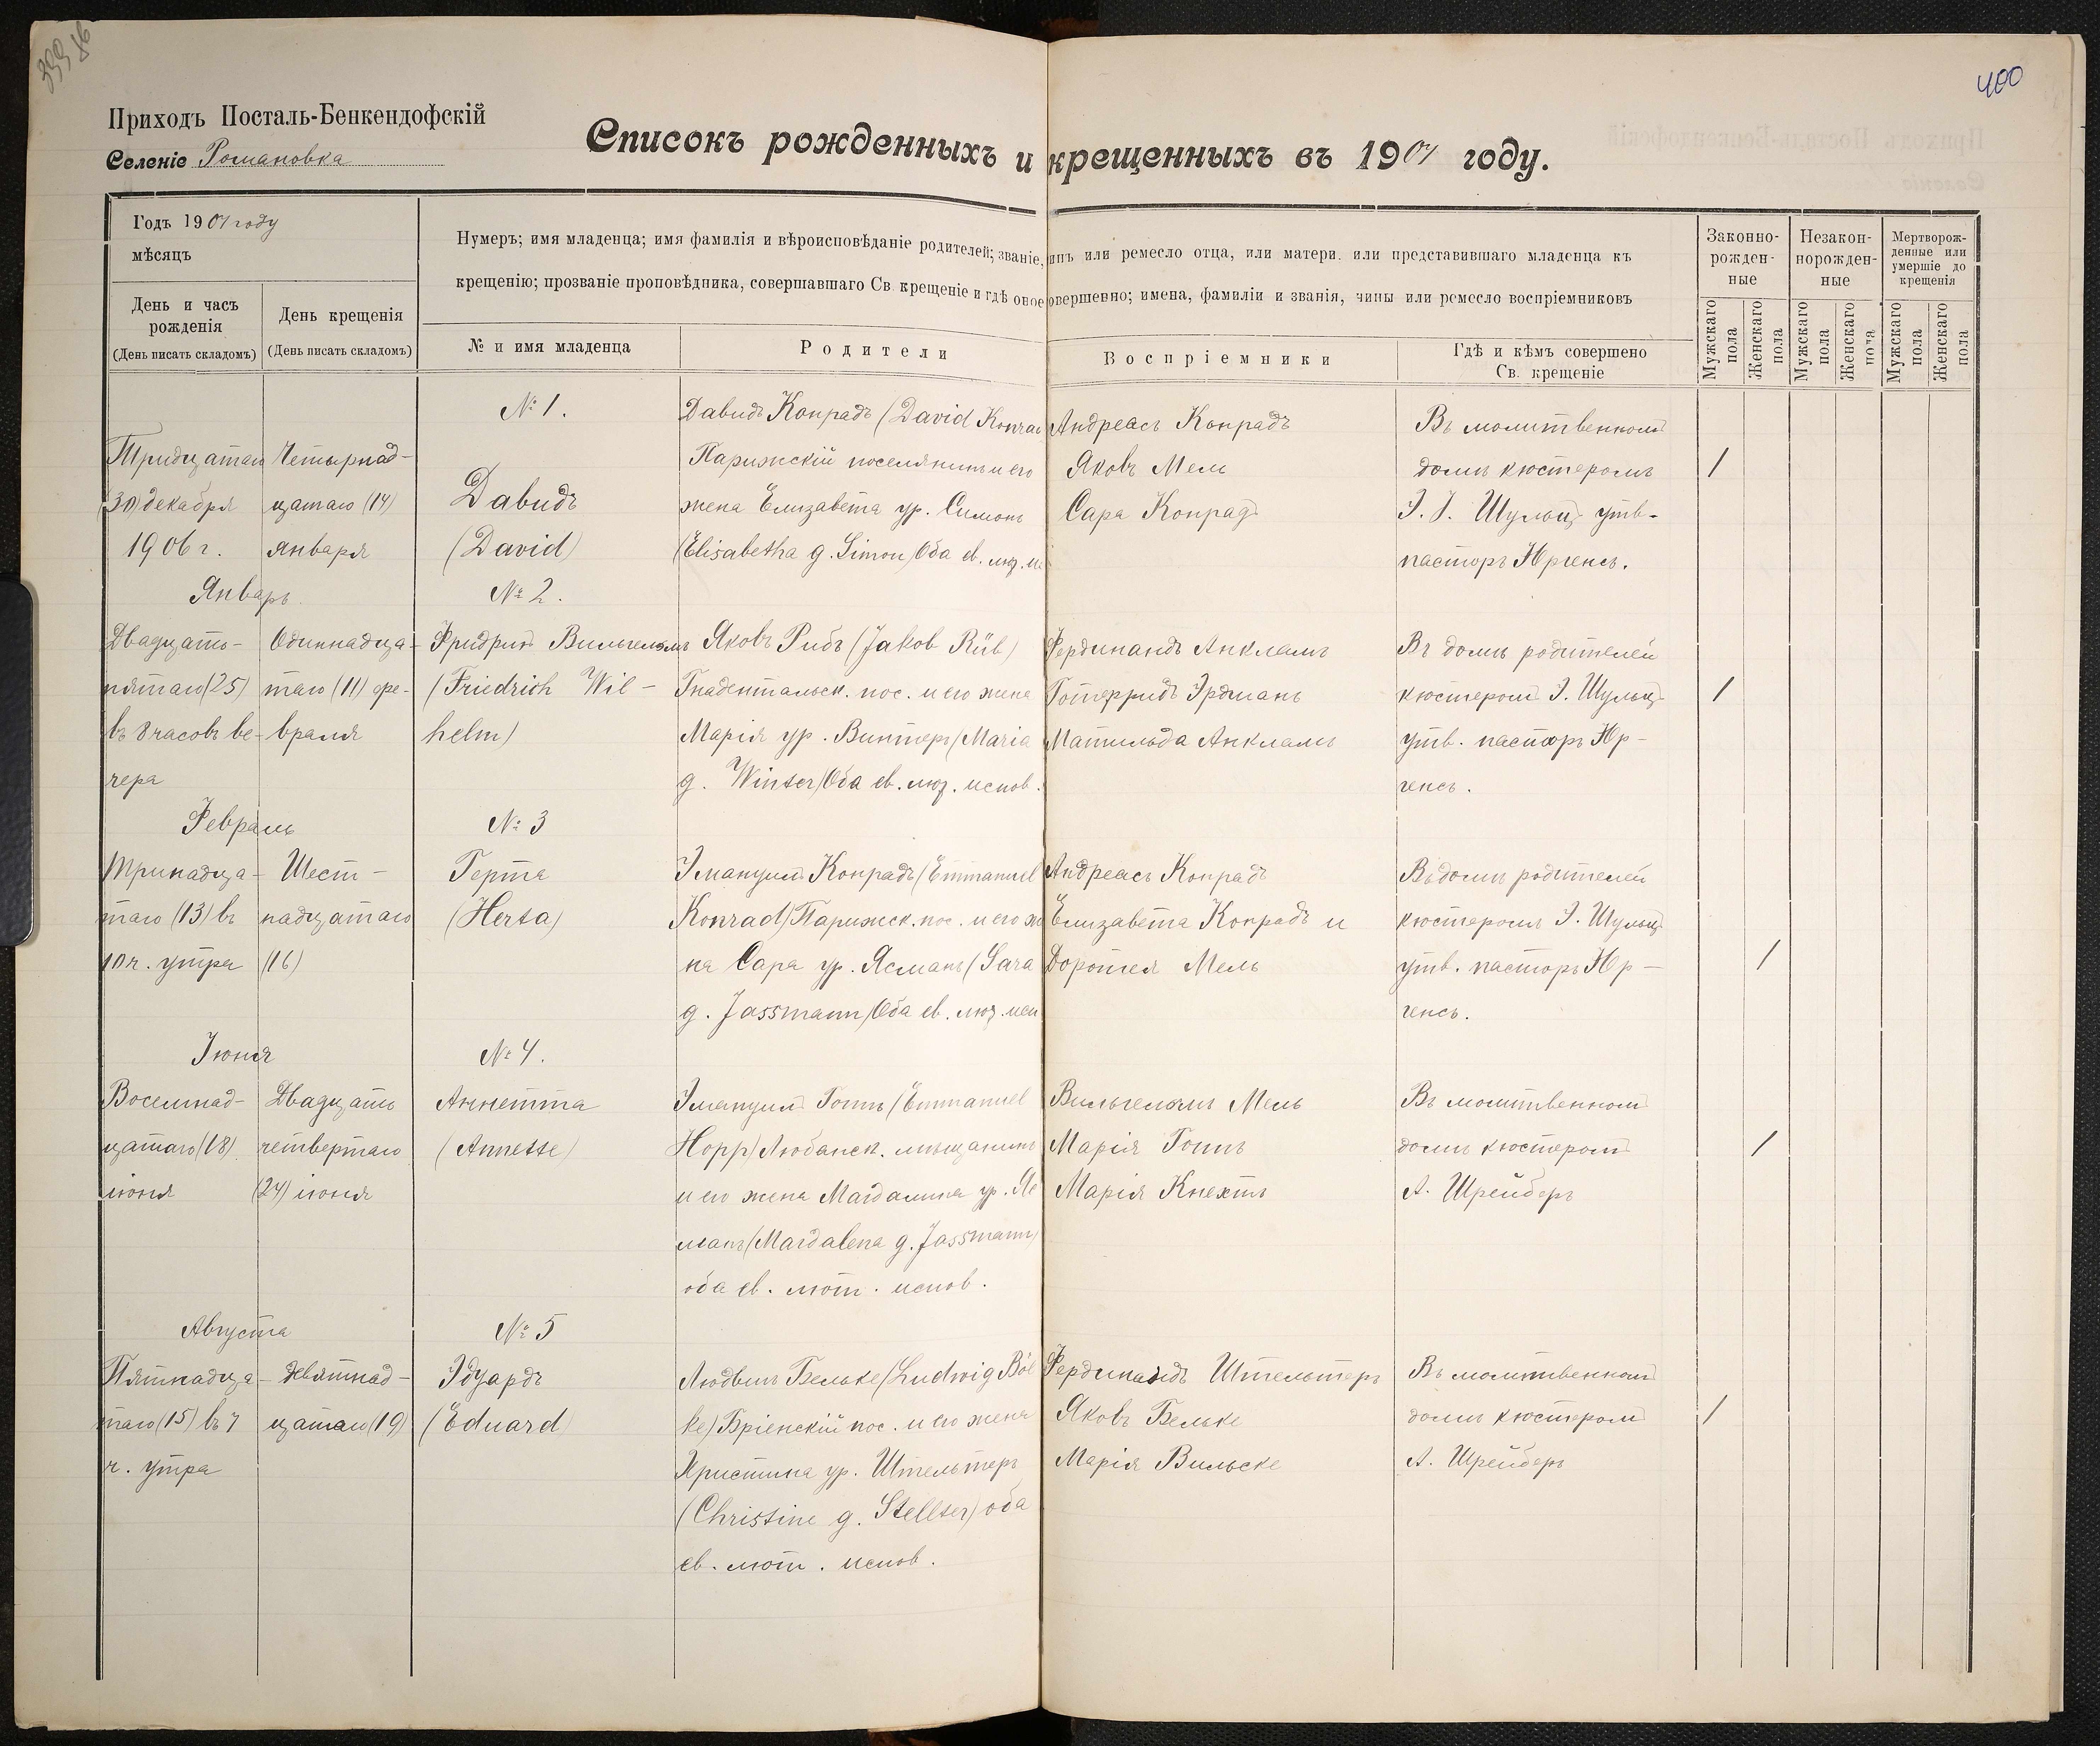 400
Приходъ Посталь-Бенкендофскій
Селеніе Романовка
Списокъ рожденныхъ и крещенныхъ въ 1907 году.
Годъ 1907 году
мѣсяцъ
День и часъ рожденія
(День писать складомъ)
День крещенія
(День писать складомъ)
Нумеръ; имя младенца; имя фамилія и вѣроисповѣданіе родителей; званіе, чинъ или ремесло отца, или матери. или представившаго младенца къ
крещенію; прозваніе проповѣдника, совершавшаго Св. крещеніе и гдѣ оное совершенно; имена, фамиліи и званія, чины или ремесло воспріемниковъ
№ и имя младенца
Родители
Воспріемники
Гдѣ и кѣмъ совершено
Св. крещеніе
Законно-
рожден-
ные
Незакон-
норожден-
ные
Мертворож-
денные или
умершіе до
крещенія
Мужскаго пола
Женскаго пола
Мужскаго пола
Женскаго пола
Мужскаго пола
Женскаго пола
Тридцатаго
(30) декабря
1906 г.
Четырнад-
цатаго (14)
января
№ 1.
Давидъ
(David)
Давидъ Конрадъ (David Konrad
Парижскій поселянинъ и его
жена Елизавета ур. Симонъ
(Elisabetha g. Simon) Оба ев. лют. и
Андреасъ Конрадъ
Яковъ Мель
Сара Конрадъ
Въ молитвенномъ
домѣ кюстеромъ
I. I. Шульц утв.
пасторъ Юргенсъ.
/
Январь
Двадцать-
пятаго (25)
въ 8 часовъ ве-
чера
Одиннадца-
таго (11) фе-
враля
№ 2.
Фридрихъ Вильгельмъ
(Friedrich Wil-
helm)
Яковъ Рибъ (Jakob Rüb)
Гнадентальск. пос. и его жена
Марія ур. Винтеръ (Maria
g. Winter) Оба ев. лют. испов.
Фердинандъ Анкламъ
Готфридъ Эрдманъ
Матильда Анкламъ
Въ домѣ родителей
кюстеромъ I. Шульц
утв. пасторъ Юр-
генсъ.
/
Февраль
Тринадца-
таго (13) въ
10 ч. утра
Шест-
надцатаго
(16)
№ 3
Герта
(Herta)
Эмануилъ Конрадъ (Emmanuel
Konrad) Парижск. пос. и его же
на Сара ур. Ясманъ (Sara
g. Jassmann) Оба ев. лют. исп
Андреасъ Конрадъ
Елизавета Конрадъ и
Доротея Мель
Въ домѣ родителей
кюстеромъ I. Шульц
утв. пасторъ Юр-
генсъ.
/
Іюня
Восемнад-
цатаго (18)
іюня
Двадцать
четвертаго
(24) іюня
№ 4.
Аннетта
(Annette)
Эмануилъ Гоппъ (Emmanuel
Hopp) Любанск. мѣщанинъ
и его жена Магдалина ур. Яс
манъ (Magdalena g. Jassmann)
оба ев. лют. испов.
Вильгельмъ Мель
Марія Гоппъ
Марія Кнехтъ
Въ молитвенномъ
домѣ кюстеромъ
А. Шрейберъ
/
Августа
Пятнадца-
таго (15) въ 7
ч. утра
Девятнад-
цатаго (19)
№ 5
Эдуардъ
(Eduard)
Людвигъ Бельке (Ludwig Böl
ke) Бріенскій пос. и его жена
Христина ур. Штельтеръ
(Christine g. Stellter) оба
ев. лют. испов.
Фердинандъ Штельтеръ
Яковъ Бельке
Марія Вильске
Въ молитвенномъ
домѣ кюстеромъ
А. Шрейберъ
/